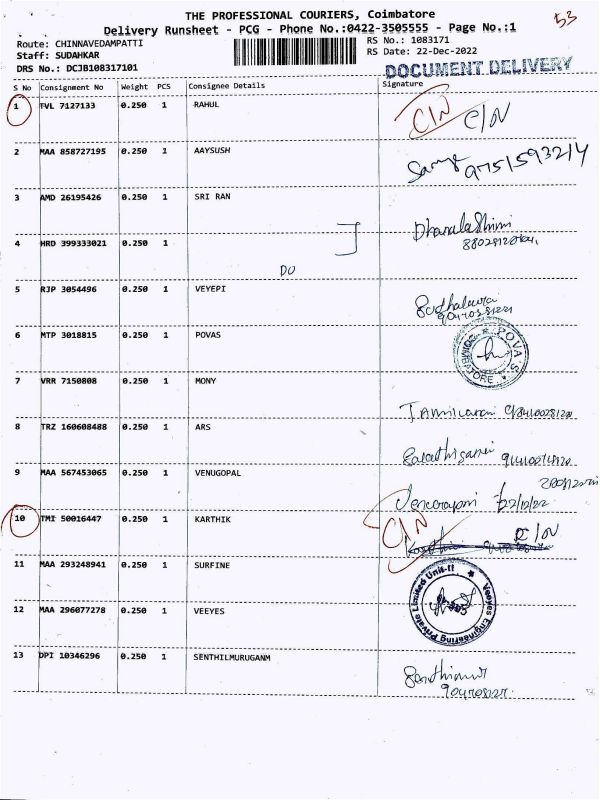 THE PROFESSIONAL COURIERS, Coimbatore
53
Delivery Runsheet - PCG - Phone No.:0422-3505555 - Page No.:1
Route: CHINNAVEDAMPATTI RS No.: 1083171
Staff: SUDAHKAR RS Date: 22-Dec-2022
DRS No.: DCJB108317101 DOCUMENT DELIVERY
S No Consignment No Weight PCS Consignee Details Signature
1 TVL 7127133 0.250 1 RAHUL C/N C/N
2 MAA 858727195 0.250 1 AAYSUSH 9751593214
3 AMD 26195426 0.250 1 SRI RAN
4 HRD 399333021 0.250 1
DO
5 RJP 3054496 0.250 1 VEYEPI
6 MTP 3018815 0.250 1 POVAS POVA'S COIMBATORE
7 VRR 7150808 0.250 1 MONY
8 TRZ 160608488 0.250 1 ARS
9 MAA 567453065 0.250 1 VENUGOPAL 22/12/22
10 TMI 50016447 0.250 1 KARTHIK C/N C/N
11 MAA 293248941 0.250 1 SURFINE
12 MAA 296077278 0.250 1 VEEYES Veeyes Engineering Private Limited Unit-II
13 DPI 10346296 0.250 1 SENTHILMURUGANM